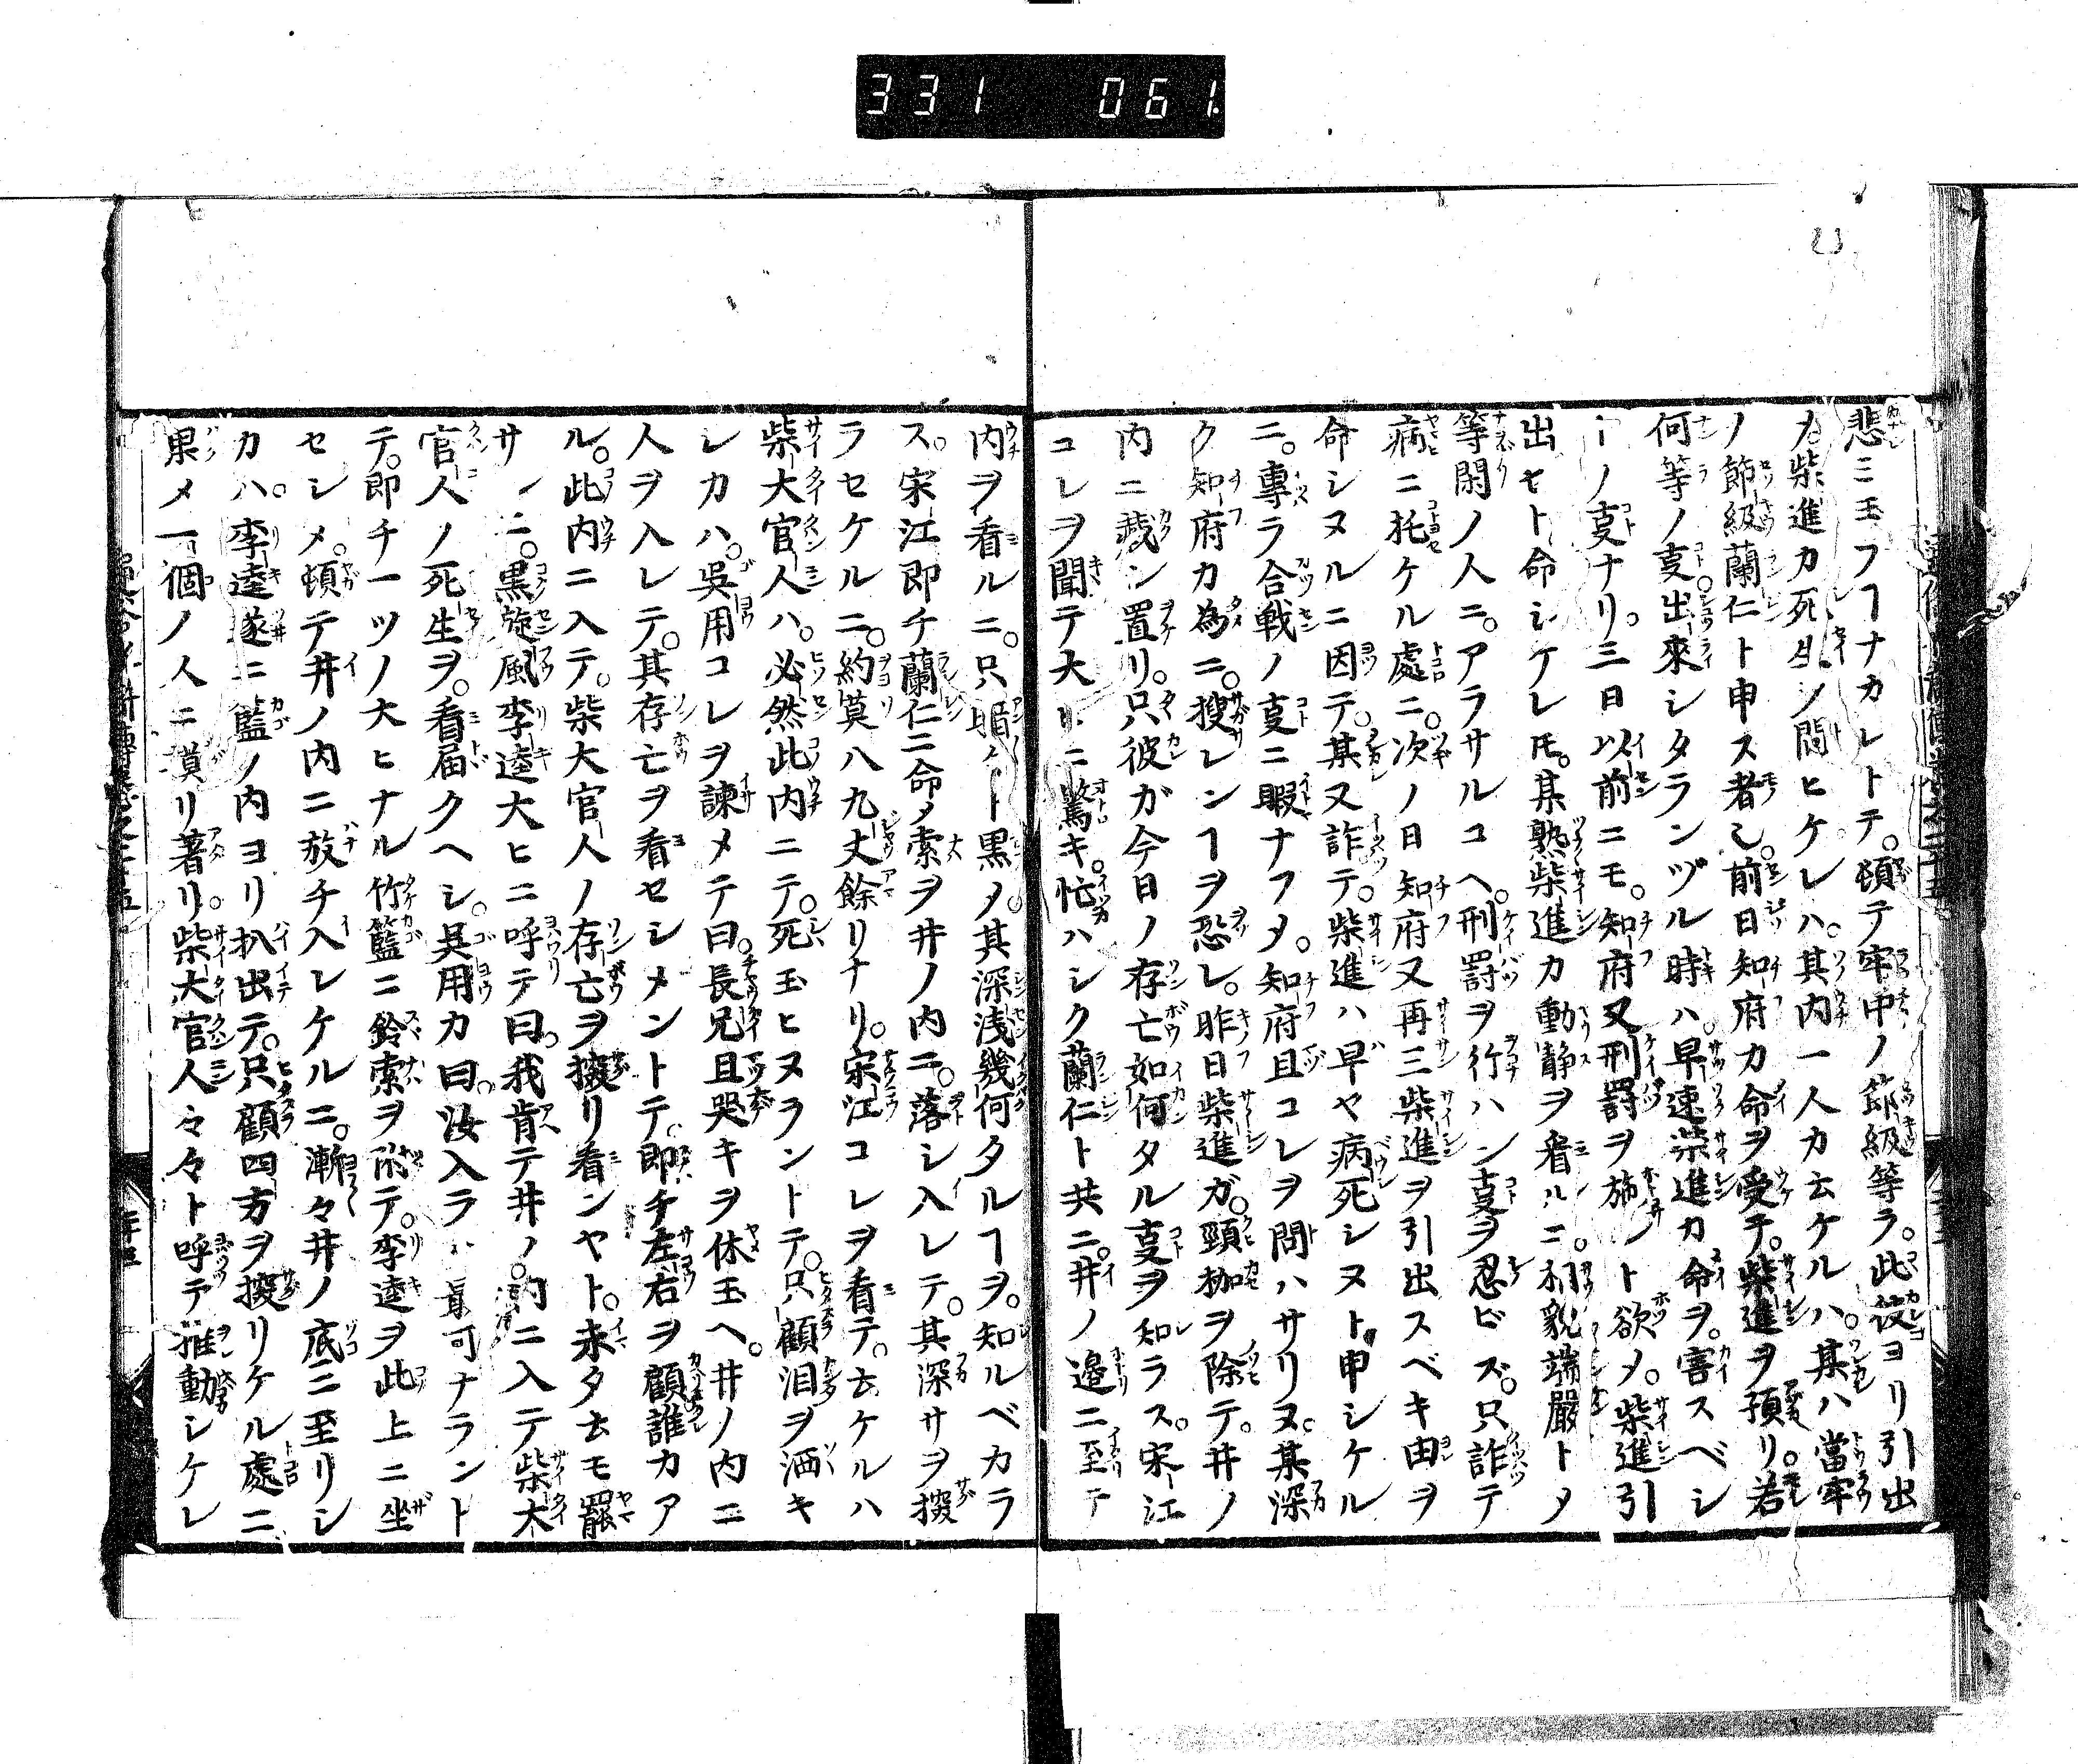 331 061
悲ミ玉フヿナカレトテ。頓テ牢中ノ節級等ヲ。此彼ヨリ引出
〆。柴進カ死生ヲ問ヒケレハ。其内一人カ云ケルハ。某ハ當牢
ノ節級藺仁ト申ス者也。前日知府カ命ヲ受テ。柴進ヲ預リ。若
何等ノ亊出來シタランヅル時ハ。早速柴進カ命ヲ。害スベシ
トノ亊ナリ。三日以前ニモ。知府又刑罸ヲ施ント欲〆。柴進引
出セト命シケレ𪜈。某熟柴進カ動静ヲ看ルニ。相貌端嚴ト〆
等閑ノ人ニ。アラサルユヘ。刑罸ヲ行ハン亊ヲ忍ビズ。只詐テ
病ニ托ケル處ニ。次ノ日知府又再三柴進ヲ引出スベキ由ヲ
命シヌルニ因テ。某又詐テ。柴進ハ早ヤ病死シヌト申シケル
ニ。專ラ合戦ノ亊ニ暇ナフ〆。知府且コレヲ問ハサリヌ。某深
ク知府カ為ニ。搜レンヿヲ恐レ。昨日柴進ガ。頸枷ヲ除テ。井ノ
内ニ藏シ置リ。只彼ガ今日ノ存亡如何タル亊ヲ知ラス。宋江
コレヲ聞テ大ヒニ驚キ。忙ハシク藺仁ト共ニ。井ノ邉ニ至テ
内ヲ看ルニ。只暗々ト黒〆。其深浅幾何タルヿヲ。知ルベカラ
ス。宋江即チ藺仁ニ命〆索ヲ井ノ内ニ。落シ入レテ。其深サヲ搜
ラセケルニ。約莫八九丈餘リナリ。宋江コレヲ看テ。云ケルハ
柴大官人ハ。必然此内ニテ。死玉ヒヌラントテ。只顧泪ヲ洒キ
シカハ。呉用コレヲ諫メテ曰。長兄且哭キヲ休玉ヘ。井ノ内ニ
人ヲ入レテ。其存亡ヲ看セシメントテ。即チ左右ヲ顧誰カア
ル。此内ニ入テ。柴大官人ノ存亡ヲ搜リ看ンヤト。未タ云モ罷
サルニ。黒旋風李逵大ヒニ呼テ曰。我肯テ井ノ内ニ入テ柴大
官人ノ死生ヲ。看届クヘシ。呉用カ曰。汝入ラハ最可ナラント
テ。即チ一ツノ大ヒナル竹籃ニ鈴索ヲ附テ。李逵ヲ此上ニ坐
セシメ。頓テ井ノ内ニ放チ入レケルニ。漸々井ノ底ニ至リシ
カハ。李逵遂ニ籃ノ内ヨリ扒出テ。只顧四方ヲ搜リケル處ニ
果〆一個ノ人ニ摸リ著リ。柴大官人々々ト呼テ推動シケレ